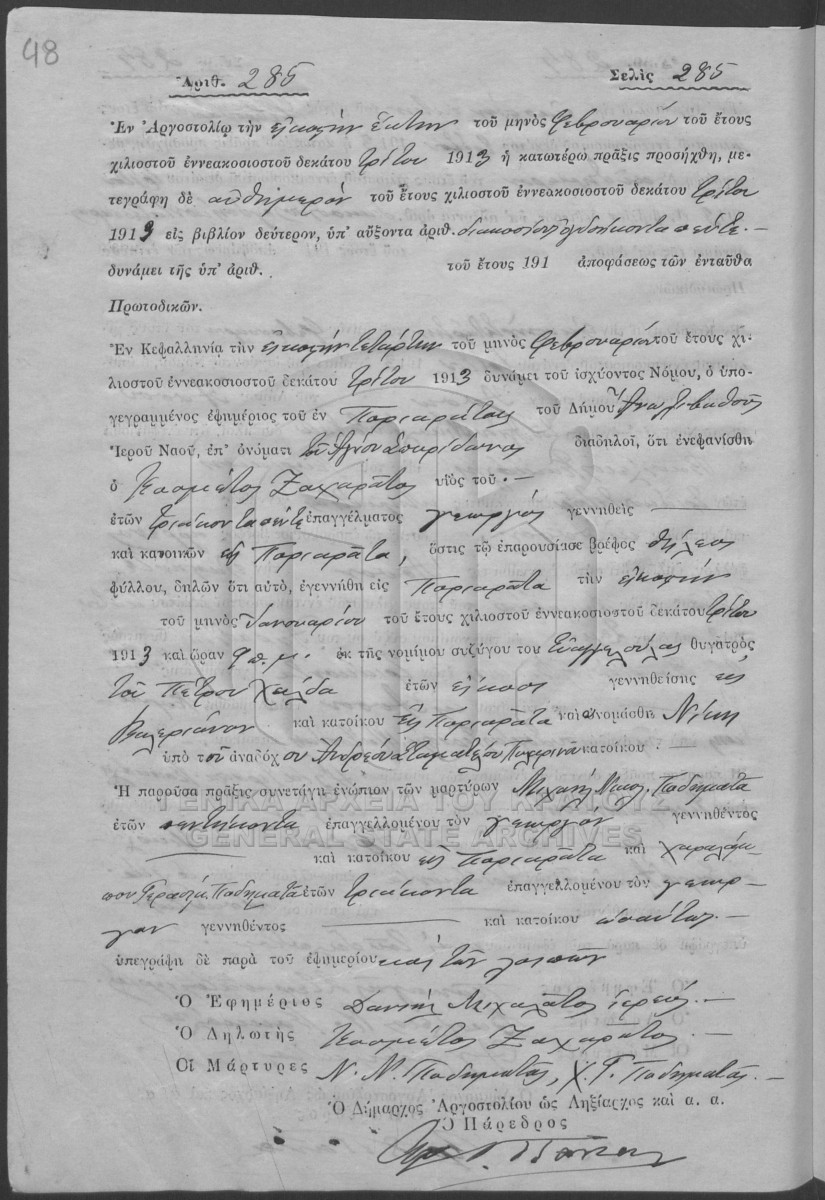 48
Ἀριθ. 285 Σελὶς 285
Ἐν Ἀργοστολίῳ τὴν εἰκοστὴν ἕκτην τοῦ μηνὸς Φεβρουαρίου τοῦ ἔτους
χιλιοστοῦ ἐννεακοσιοστοῦ δεκάτου τρίτου 1913 ἡ κατωτέρω πρᾶξις προσήχθη, με-
τεγράφη δὲ αὐθημερόν τοῦ ἔτους χιλιοστοῦ ἐννεακοσιοστοῦ δεκάτου τρίτου
1913 εἰς βιβλίον δεύτερον, ὑπ' αὔξοντα ἀριθ. διακοσίον ὀγδοήκοντα πέντε.—
δυνάμει τῆς ὑπ' ἀριθ. τοῦ ἔτους 191 ἀποφάσεως τῶν ἐνταῦθα
Πρωτοδικῶν.
Ἐν Κεφαλληνίᾳ τὴν εἰκοστὴν τετάρτην τοῦ μηνὸς Φεβρουαρίου τοῦ ἔτους χι-
λιοστοῦ ἐννεακοσιοστοῦ δεκάτου τρίτου 1913 δυνάμει τοῦ ἰσχύοντος Νόμου, ὁ ὑπο-
γεγραμμένος ἐφημέριος τοῦ ἐν τοῦ Δήμου
Ἱεροῦ Ναοῦ, ἐπ' ὀνόματι τοῦ Ἁγίου Σπυρίδωνος διαδηλοῖ, ὅτι ἐνεφανίσθη
ὁ Κοσμᾶτος Ζαχαρᾶτος υἱὸς τοῦ.—
ἐτῶν τριάκοντα πέντε ἐπαγγέλματος γεωργός γεννηθεὶς —
καὶ κατοικῶν εἰς, ὅστις τῷ ἐπαρουσίασε βρέφος θήλεος
φύλλου, δηλῶν ὅτι αὐτὸ, ἐγεννήθη εἰς τὴν εἰκοστήν
τοῦ μηνὸς Ἰανουαρίου τοῦ ἔτους χιλιοστοῦ ἐννεακοσιοστοῦ δεκάτου τρίτου
1913 καὶ ὥραν 9 π.μ. ἐκ τῆς νομίμου συζύγου του Εὐαγγελούλας θυγατρὸς
τοῦ Πέτρου ἐτῶν εἴκοσι γεννηθείσης εἰς
Βαλεριάνον καὶ κατοίκου εἰς καὶ ὠνομάσθη Νίκη
ὑπὸ τοῦ ἀναδόχου Ἀνδρέου κατοίκου —
Ἡ παροῦσα πρᾶξις συνετάγη ἐνώπιον τῶν μαρτύρων Μιχαὴλ Νικολ. Ποδηματᾶ
ΓΕΝΙΚΑ ΑΡΧΕΙΑ ΤΟΥ ΚΡΑΤΟΥΣ
ἐτῶν πεντήκοντα ἐπαγγελλομένου τὸν γεωργόν γεννηθέντος
GENERAL STATE ARCHIVES
— καὶ κατοίκου εἰς καὶ Χαραλάμ-
που Γερασίμ. Ποδηματᾶ ἐτῶν τριάκοντα ἐπαγγελλομένου τὸν γεωρ-
γόν γεννηθέντος — καὶ κατοίκου ὡσαύτως.—
ὑπεγράφη δὲ παρὰ τοῦ ἐφημερίου καὶ τῶν λοιπῶν
Ὁ Ἐφημέριος Δανιὴλ Μιχαλᾶτος ἱερεύς.—
Ὁ Δηλωτὴς Κοσμᾶτος Ζαχαρᾶτος.—
Οἱ Μάρτυρες Ν. Ποδηματᾶς, Χ. Γ. Ποδηματᾶς.—
Ὁ Δήμαρχος Ἀργοστολίου ὡς Ληξίαρχος καὶ α. α.
Ὁ Πάρεδρος